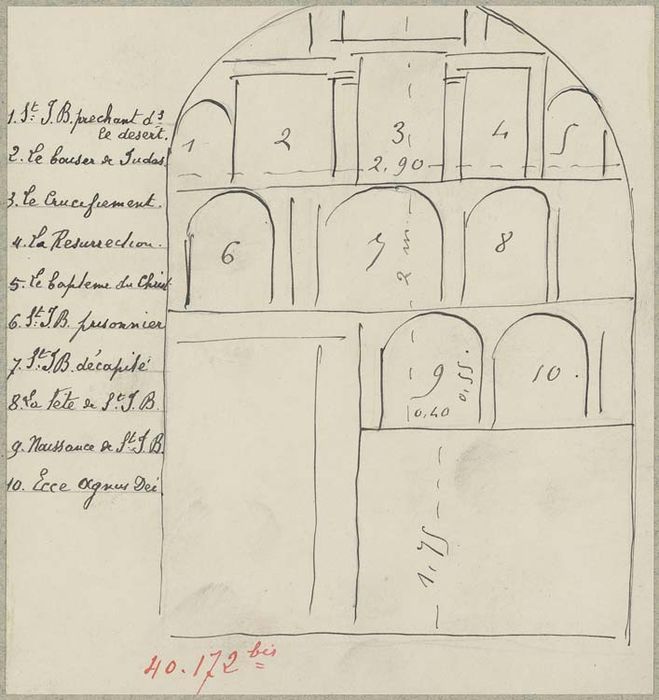 1. St J.B. prechant ds
le desert.
2. Le baiser de Judas
3. Le Crucifiement.
4. La Resurrection.
5. Le bapteme du Christ
6. St J.B. prisonnier
7. St J.B. décapité
8. La Tête de St J.B.
9. Naissance de St J.B.
10. Ecce Agnus Dei
1
2
3
4
5
2,90
6
7
8
2 m.
9
10.
0,55.
0,40
1,75
40.172 bis